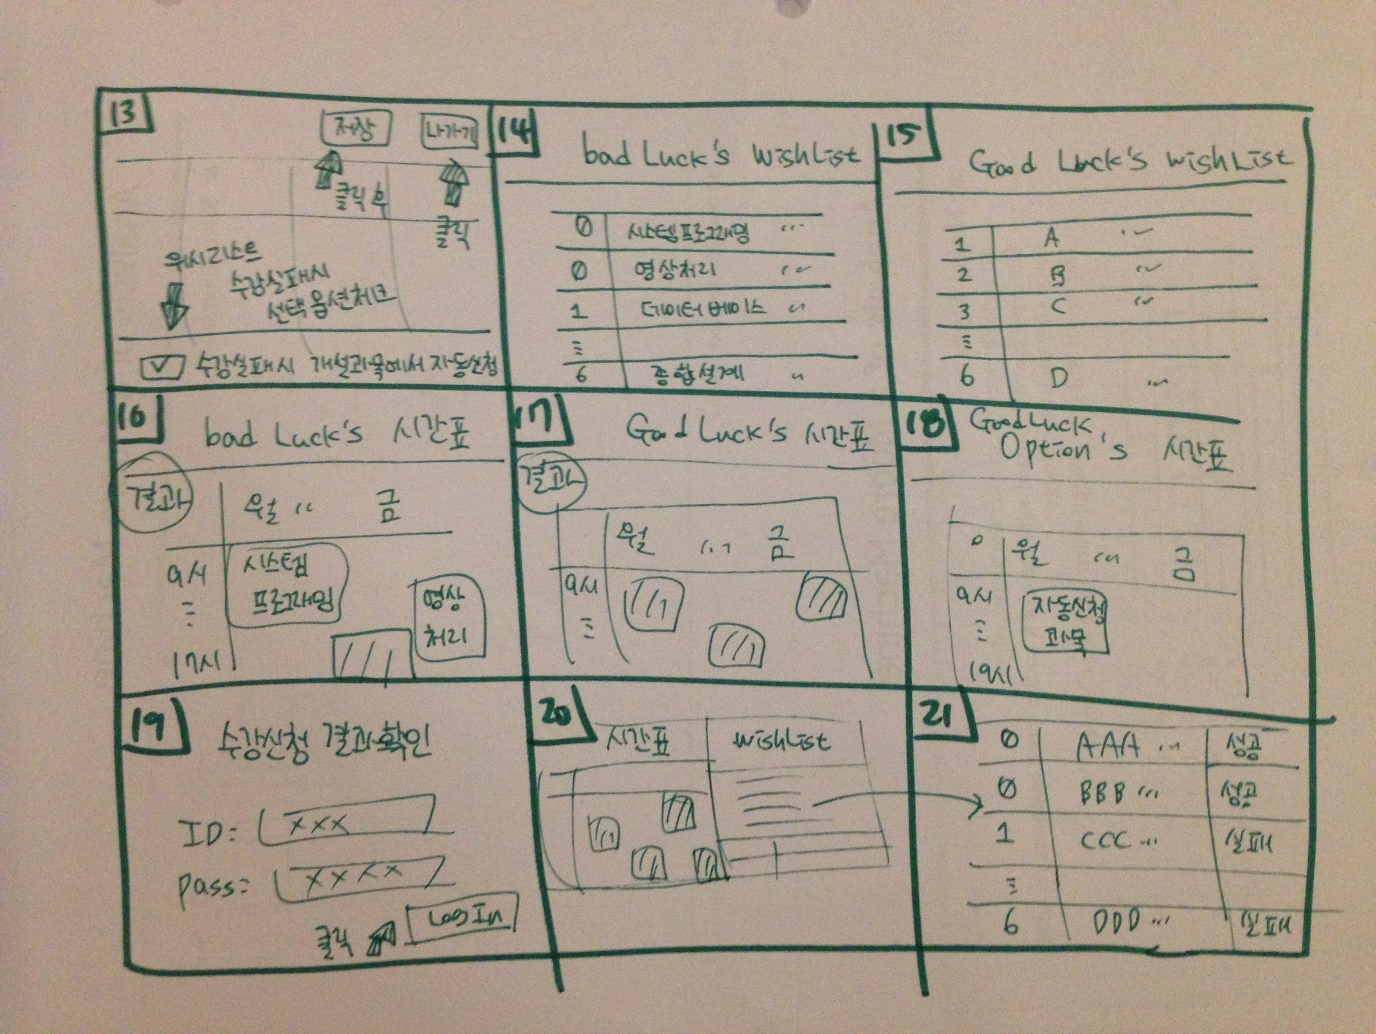 13
저장 나가기
클릭 후
클릭
위시리스트
수강실패시
선택옵션체크
수강실패시 개설과목에서 자동신청
14
bad Luck's WishList
0 시스템프로그래밍 ...
0 영상처리 ...
1 데이터베이스 ..
6 종합설계 ..
15
Good Luck's WishList
1 A ...
2 B ...
3 C ...
6 D ...
16
bad Luck's 시간표
결과
월 .. 금
9시
시스템
프로그래밍
영상
처리
17시
17
Good Luck's 시간표
결과
월 ... 금
9시
18
Good Luck
Option's 시간표
0 월 ... 금
9시
자동신청
과목
19시
19
수강신청 결과확인
ID: xxx
Pass: xxxx
클릭 Log In
20
시간표 WishList
21
0 AAA ... 성공
0 BBB ... 성공
1 CCC ... 실패
6 DDD ... 실패